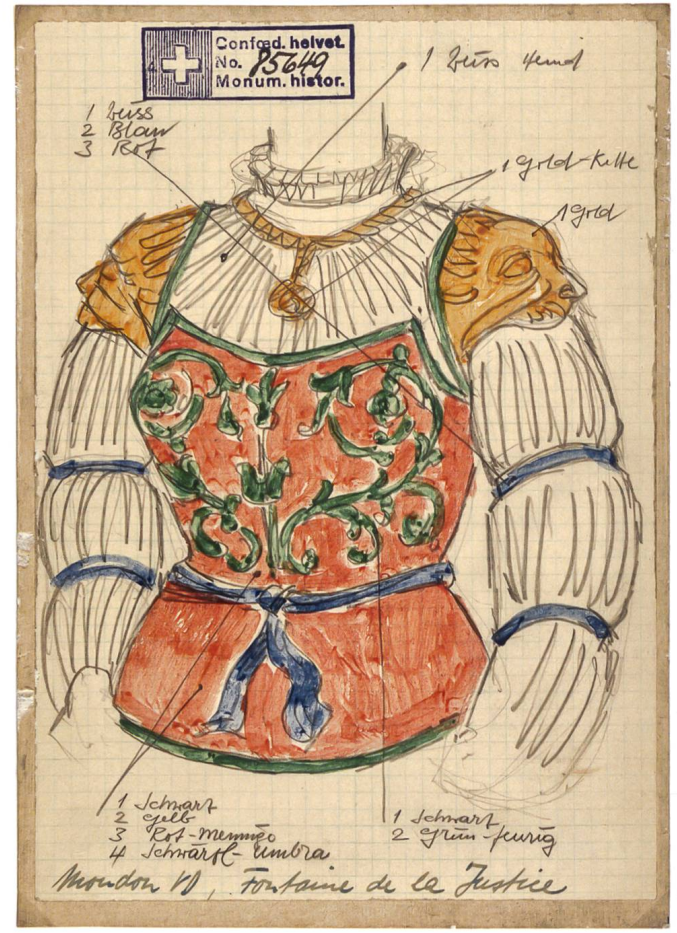 Confœd. helvet.
No. 85649
Monum. histor.
1 Weiss Hemd
1 Weiss
2 Blau
3 Rot
1 Gold-Kette
1 Gold
1 Schwarz
2 Gelb
3 Rot-Mennige
4 Schwärzl-Umbra
1 Schwarz
2 Grün-feurig
Moudon VD, Fontaine de la Justice